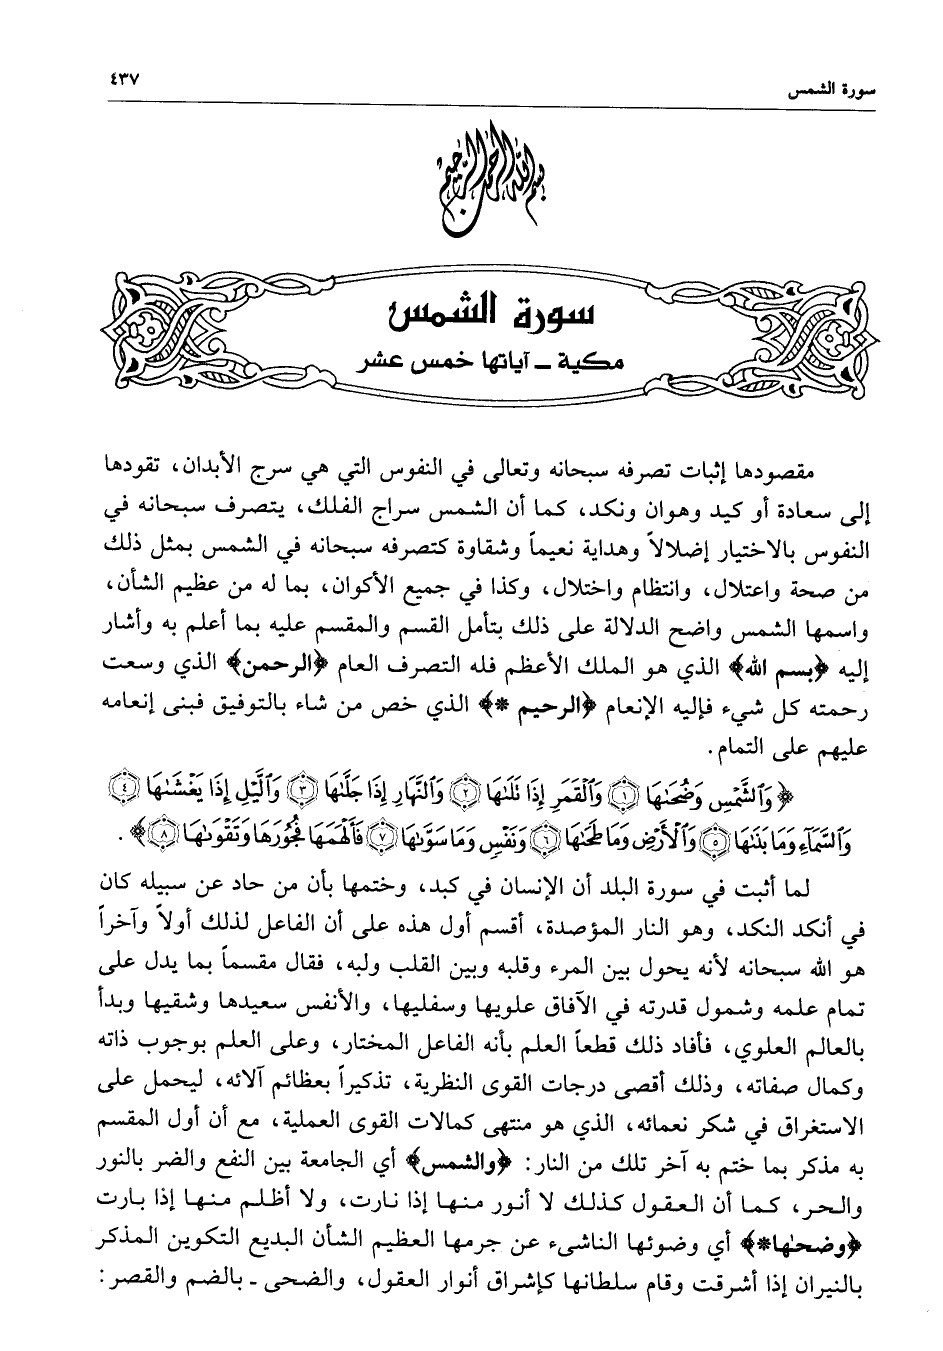 سورة الشمس
٤٣٧
بسم الله الرحمن الرحيم
سورة الشمس
مكية ــ آياتها خمس عشر
مقصودها إثبات تصرفه سبحانه وتعالى في النفوس التي هي سرج الأبدان، تقودها
إلى سعادة أو كيد وهوان ونكد، كما أن الشمس سراج الفلك، يتصرف سبحانه في
النفوس بالاختيار إضلالاً وهداية نعيماً وشقاوة كتصرفه سبحانه في الشمس بمثل ذلك
من صحة واعتلال، وانتظام واختلال، وكذا في جميع الأكوان، بما له من عظيم الشأن،
واسمها الشمس واضح الدلالة على ذلك بتأمل القسم والمقسم عليه بما أعلم به وأشار
إليه ﴿بسم الله﴾ الذي هو الملك الأعظم فله التصرف العام ﴿الرحمن﴾ الذي وسعت
رحمته كل شيء فإليه الإنعام ﴿الرحيم *﴾ الذي خص من شاء بالتوفيق فبنى إنعامه
عليهم على التمام.
﴿ وَٱلشَّمْسِ وَضُحَىٰهَا ﴿١﴾ وَٱلْقَمَرِ إِذَا تَلَىٰهَا ﴿٢﴾ وَٱلنَّهَارِ إِذَا جَلَّىٰهَا ﴿٣﴾ وَٱلَّيْلِ إِذَا يَغْشَىٰهَا ﴿٤﴾
وَٱلسَّمَآءِ وَمَا بَنَىٰهَا ﴿٥﴾ وَٱلْأَرْضِ وَمَا طَحَىٰهَا ﴿٦﴾ وَنَفْسٍ وَمَا سَوَّىٰهَا ﴿٧﴾ فَأَلْهَمَهَا فُجُورَهَا وَتَقْوَىٰهَا ﴿٨﴾ ﴾ .
لما أثبت في سورة البلد أن الإنسان في كبد، وختمها بأن من حاد عن سبيله كان
في أنكد النكد، وهو النار المؤصدة، أقسم أول هذه على أن الفاعل لذلك أولاً وآخراً
هو الله سبحانه لأنه يحول بين المرء وقلبه وبين القلب ولبه، فقال مقسماً بما يدل على
تمام علمه وشمول قدرته في الآفاق علويها وسفليها، والأنفس سعيدها وشقيها وبدأ
بالعالم العلوي، فأفاد ذلك قطعاً العلم بأنه الفاعل المختار، وعلى العلم بوجوب ذاته
وكمال صفاته، وذلك أقصى درجات القوى النظرية، تذكيراً بعظائم آلائه، ليحمل على
الاستغراق في شكر نعمائه، الذي هو منتهى كمالات القوى العملية، مع أن أول المقسم
به مذكر بما ختم به آخر تلك من النار: ﴿والشمس﴾ أي الجامعة بين النفع والضر بالنور
والحر، كما أن العقول كذلك لا أنور منها إذا نارت، ولا أظلم منها إذا بارت
﴿وضحىٰها*﴾ أي وضوئها الناشىء عن جرمها العظيم الشأن البديع التكوين المذكر
بالنيران إذا أشرقت وقام سلطانها كإشراق أنوار العقول، والضحى ـ بالضم والقصر: